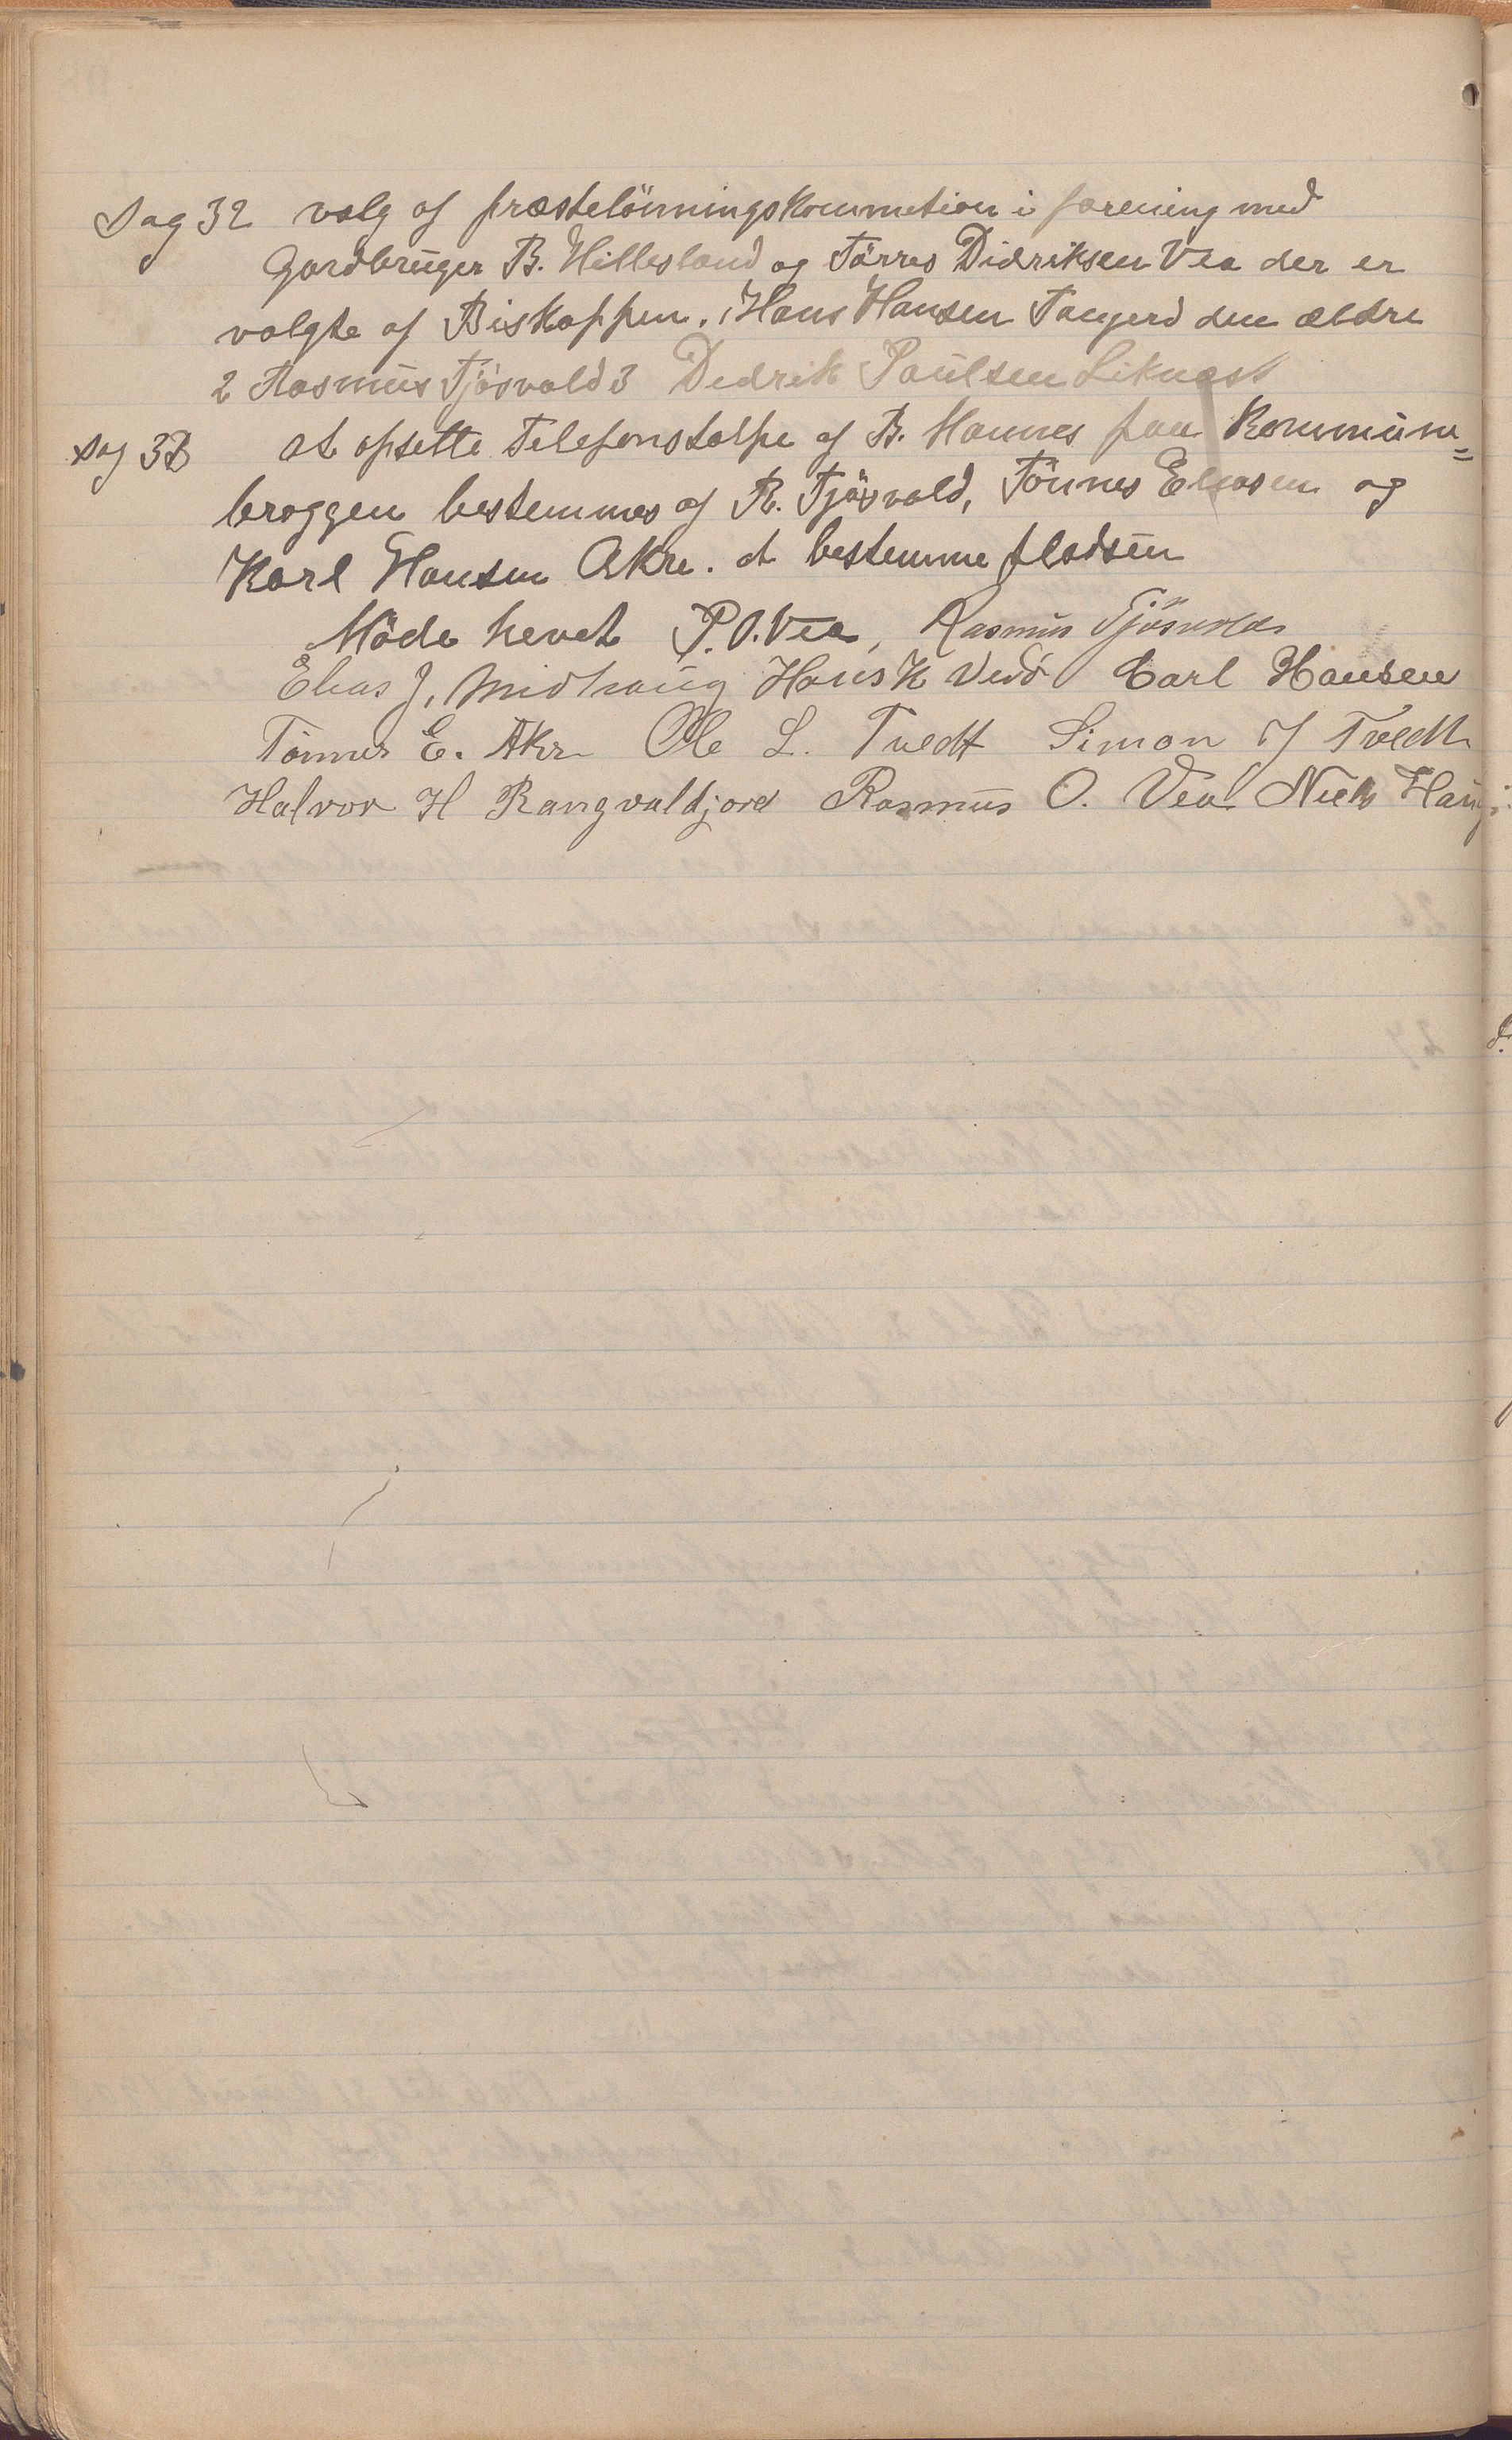 Sag 32 valg af præstelönningskommetion i forening med
Gardbrüger B. Hillesland og Törres Didriksen Vea der er
valgte af Biskoppen. 1 Hans Hansen Tangerd den ældre
2 Rasmüs Tjösvold 3 Dedrik Paülsen Liknæs
Sag 33 at opsette Telefonstolpe af B. Hannes paa Kommüne=
broggen bestemmes af R. Tjösvold, Tönnes Eliasen og
Karl Hansen Akre. at bestemme pladsen
Möde hevet P. O. Vea, Rasmus Tjösvold
Elias J. Midhaüg Hans K Vedö Carl Hansen
Tönnes E. Akre Ole L. Tvedt Simon J Tvedt
Halvor H Rangvaldjord Rasmüs O. Vea Niels